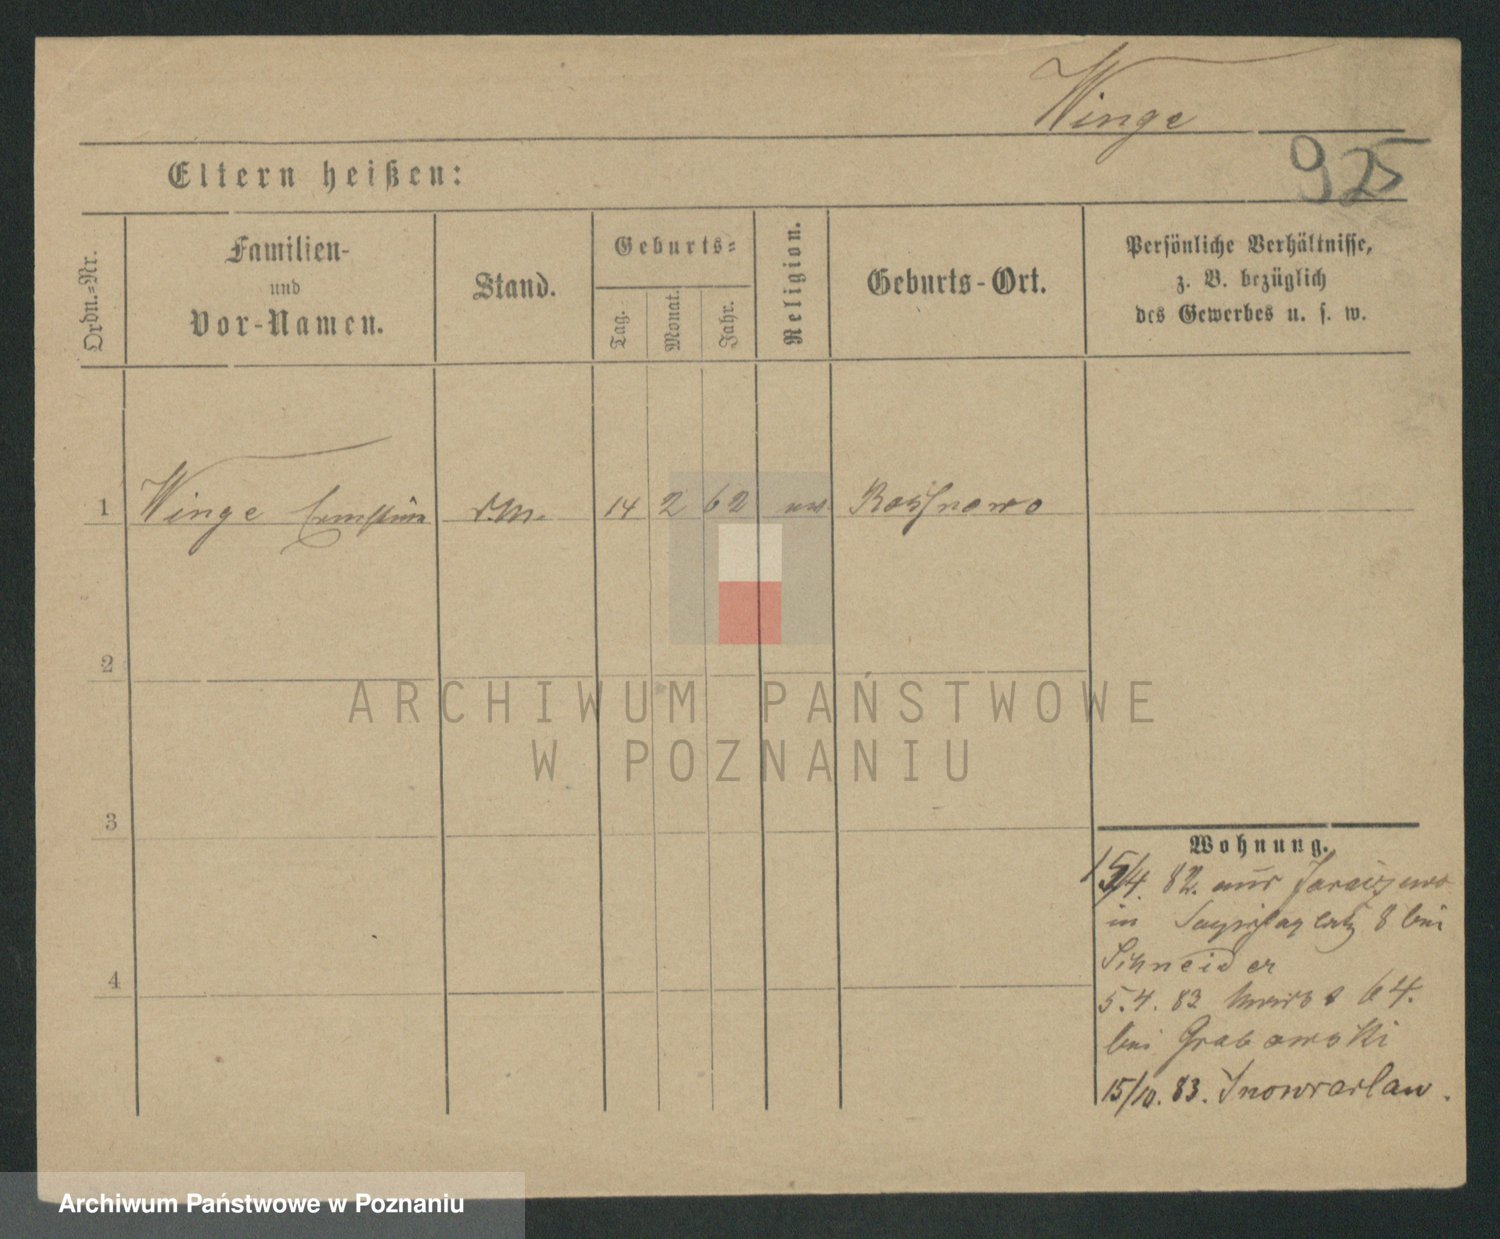 Winge
925
Eltern heißen:
Ordn.=Nr.
Familien-
und
Vor-Namen.
Stand.
Geburts=
Tag.
Monat.
Jahr.
Religion.
Geburts-Ort.
Persönliche Verhältnisse,
z. B. bezüglich
des Gewerbes u. s. w.
1 Winge Ernestine d.M. 14 2 62 ev. Rossnowo
2
3
4
ARCHIWUM PAŃSTWOWE
W POZNANIU
Wohnung.
15/4. 82. aus
in 8 bei
Schneider
5.4.83 Markt 64.
bei Grabowski
15/10. 83. Inowrazlaw.
Archiwum Państwowe w Poznaniu